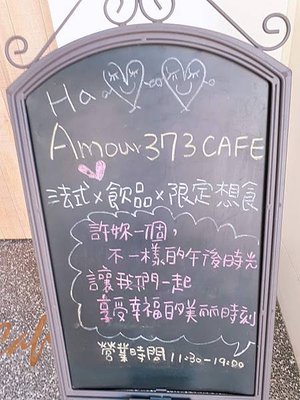 Ha
Amour 373 CAFE
法式×飲品×限定想食
許妳一個,
不一樣的午後時光
讓我們一起
享受幸福的美麗時刻
營業時間 11:30-19:00